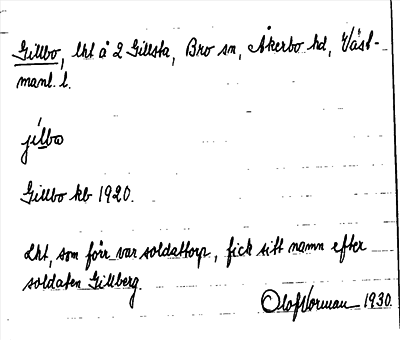 Gillbo, lht å 2 Gillsta, Bro sn, Åkerbo hd, Väst-
manl. l.
jílbo
Gillbo kb 1920.
Lht, som förr var soldattorp, fick sitt namn efter
soldaten Gillberg.
Olof Norman 1930.